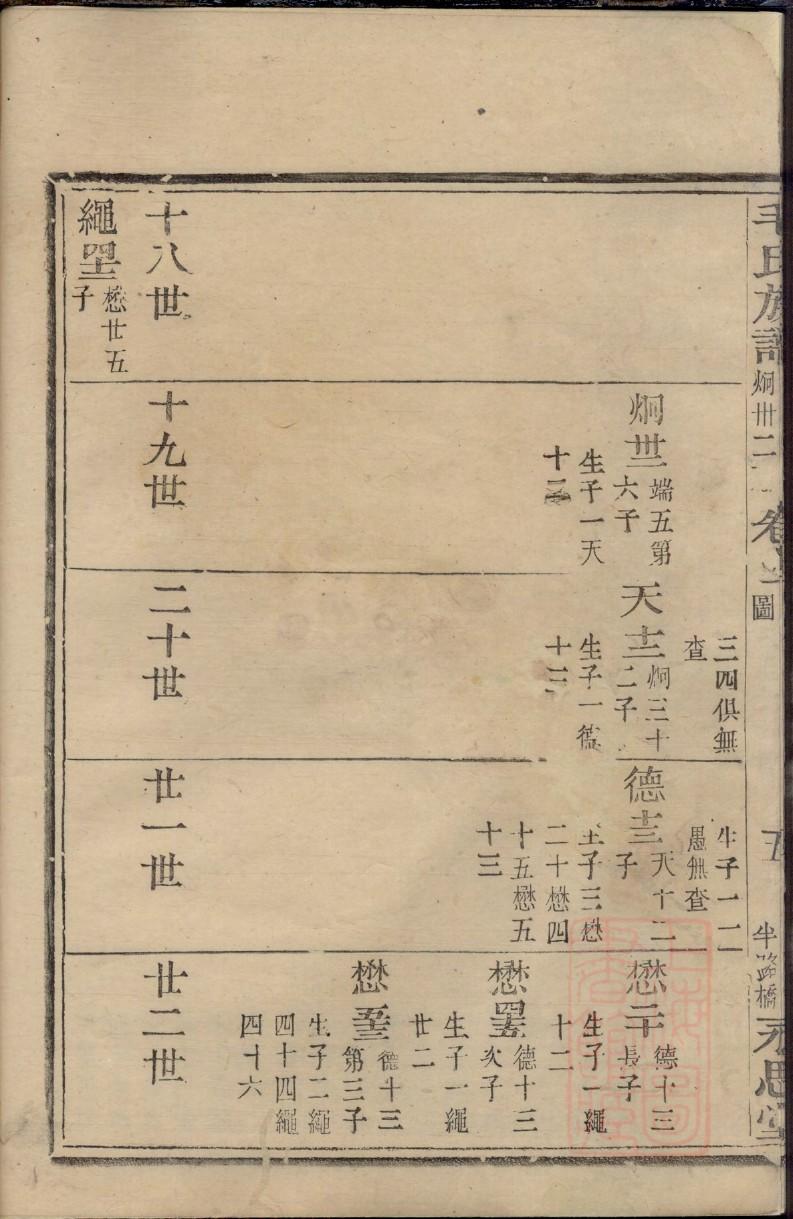 毛氏族譜
炯卅二
圖
五
半路橋
永思堂
炯卅二
端五第
六子
生子一天
十二
三四俱無
查
天十二
炯三十
二子
生子一德
十三
生子一二
愚無查
德十三
天十二
子
生子三懋
二十懋四
十五懋五
十三
懋二十
德十三
長子
生子一繩
十二
懋四十五
德十三
次子
生子一繩
廿二
懋五十三
德十三
第三子
生子二繩
四十四繩
四十六
十八世
十九世
二十世
廿一世
廿二世
繩
懋廿五
子